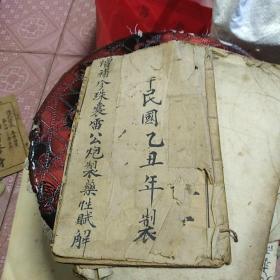 民國乙丑年製
增補珍珠囊雷公炮製藥性賦解